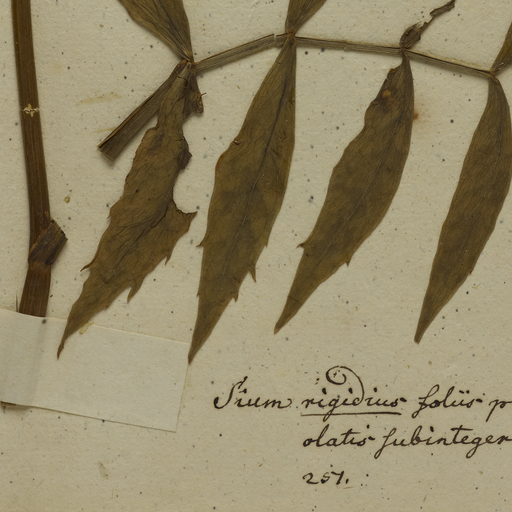 Sium rigidius foliis p
olatis subinteger
251.